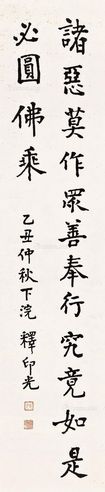 諸惡莫作眾善奉行究竟如是
必圓佛乘
乙丑仲秋下浣 釋印光